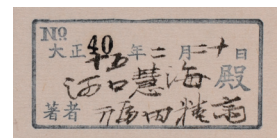 No 40
大正十五年二月二十日
河口慧海殿
著者 福田精